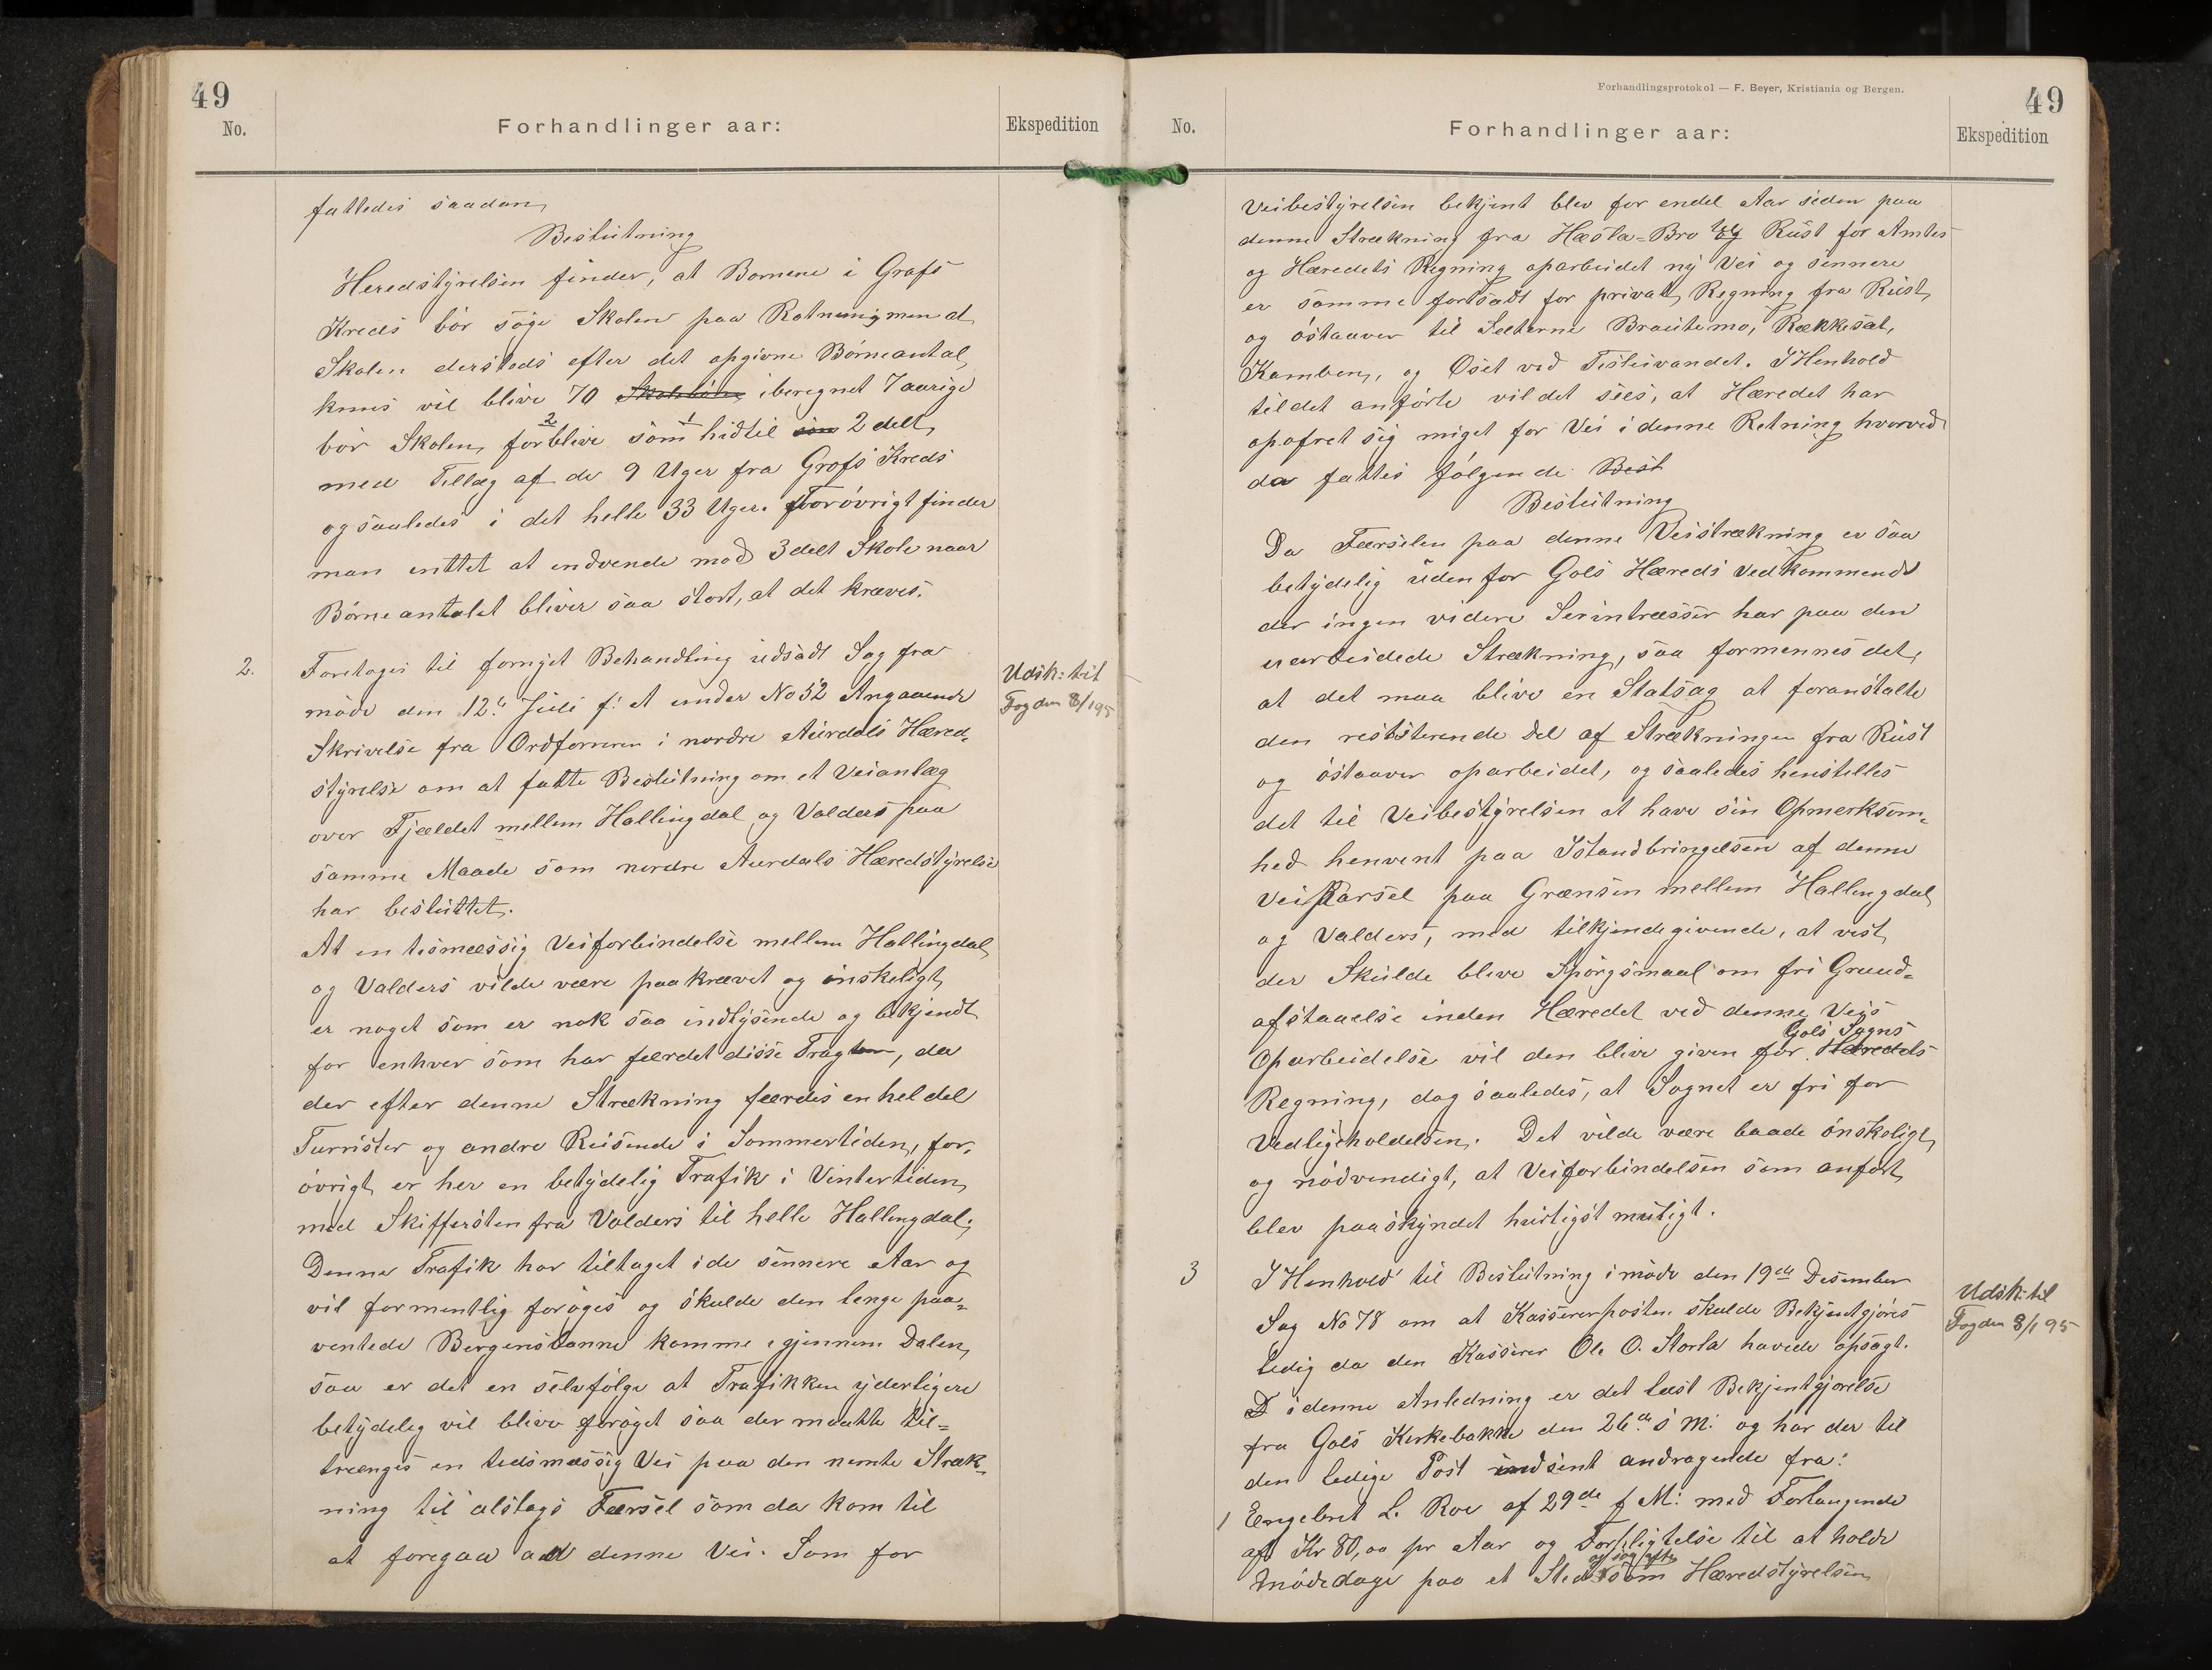 49
No.
Forhandlinger aar:
Ekspedition
fattedes saadan
Beslutning
Heredstyrelsen finder, at Bornene i Grafs
Kreds bör söge Skolen paa Rotneimsmend
Skolen dersteds efter det opgivne Börneantal
kuns vil blive 70 iberegnet 7 aarige
bör Skolen forblive som hidtil 2 delt,
med Tillæg af de 9 Uger fra Grafs Kreds
og saaledes i det helle 33 Uger. Forövrigt finder
man inttet at indvende mod 3 delt Skole naar
Börneantalet bliver saa stort, at det kræves.
2.
Foretoges til fornyet Behandling udsadt Sag fra
möde den 12te Juli f: A under No 52 Angaaende
Skrivelse fra Ordföreren i nordre Aurdals Hæred-
styrelse om at fatte Beslutning om et Veianlæg
over Fjældet mellem Hallingdal og Valders paa
samme Maade som nordre Aurdals Hæredstyrelse
har besluttet.
Udsk: til
Fogden 8/1 95
At en tismæssig Veiforbindelse mellem Hallingdal
og Valders vilde være paakrævet og önskeligt
er noget som er nok saa indlysende og bekjendt
for enhver som har færdet disse Tragter, da
der efter denne Strækning færdes en hel del
Turrister og andre Reisende i Sommertiden, for,
övrigt er her en betydelig Trafik i Vintertiden
med Skiffersten fra Valders til helle Hallingdal;
Denne Trafik har tiltaget i de sennere Aar og
vil formentlig foröges og skulde den lenge paa-
ventede Bergensbanne komme igjennem Dalen,
saa er det en selvfölge at Trafikken yderligere
betydelig vil blive foröget saa der maatte til-
trænges en tidsmæssig Vei paa den nemte Stræk-
ning til alslags Færsel som da kom til
at foregaa ad denne Vei. Som for
Forhandlingsprotokol — F. Beyer, Kristiania og Bergen.
49
No.
Forhandlinger aar:
Ekspedition
Veibestyrelsen bekjent blev for endel Aar siden paa
denne Strækning fra Hæsla-Bro til Rust for Amtes
og Hæredets Regning oparbeidet ny Vei og sennere
er somme fortsadt for privat Regning fra Rust
og östaaver til Sæterne Brautemo, Rækkesæt,
Kamben, og Oset ved Tisleivandet. I Henhold
til det anförte vil det sees, at Hæredet har
opofret sig miget for Vei i denne Retning hvorved
da fattes fölgende Besl
Beslutning
Da Færselen paa denne Veistrækning er saa
betydelig uden for Gols Hæreds Vedkommende
der ingen videre Særintræsser har paa den
uarbeidede Strækning, saa formennes det,
at det maa blive en Statsag at foranstalte
den resisterende Del af Strækningen fra Rust
og östaaver oparbeidet, og saaledes henstilles
det til Veibestyrelsen at have sin Opmerksom-
hed henvent paa Istandbringelsen af denne
Veiparsel paa Grænsen mellem Hallingdal
og Valders, med tilkjendegivende, at vist
der Skulde blive Spörgsmaal om fri Grund-
afstaaelse inden Hæredet ved denne Veis
Oparbeidelse vil den blive given for Gols Sogns Hæredets
Regning, dog saaledes, at Sognet er fri for
Vedligeholdelsen. Det vilde være baade önskeligt
og nödvendigt, at Veiforbindelsen som anfört
blev paaskyndet hurtigst muligt.
3
I Henhold til Beslutning i möde den 19de Desember
Sag No 78 om at Kassererposten skulde Bekjentgjöres
ledig da den Kasserer Ole O. Storla havede opsagt.
Udsk: til
Fogden 8/1 95
I denne Anledning er det læst Bekjentgjörelse
fra Gols Kirkebakke den 26de s M: og har der til
den ledige Post indsent andragende fra:
1 Engebret L. Roe af 29de f M: med Forlangende
af Kr 80,00 pr Aar og Forpligtelse til at holde
mödedage paa et Sted som Hæredstyrelsen